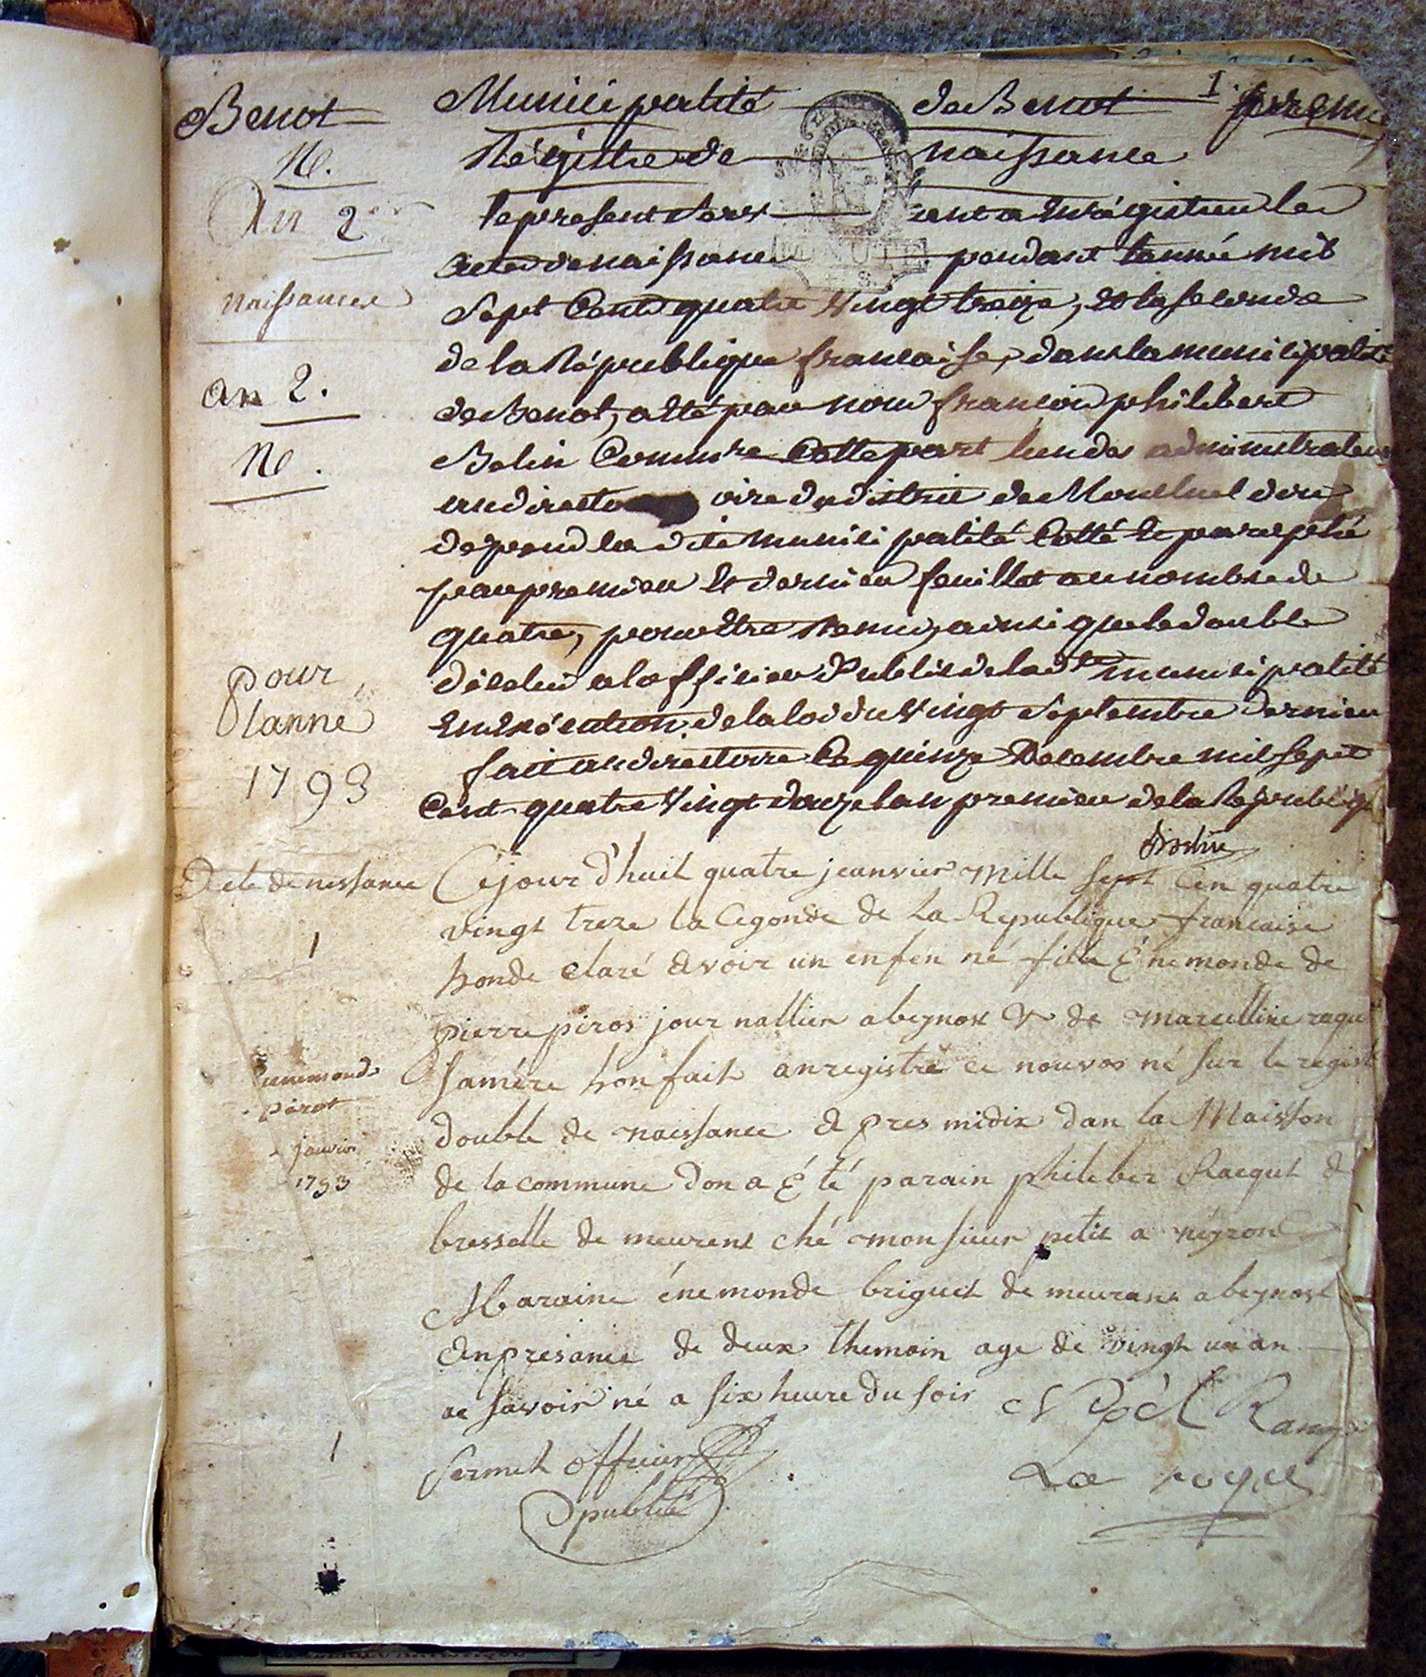 Benot Municipalité de Benot 1. premie
N. Régistre de naissance
An 2 le present servant a Enrégistrer les
actes de naissance MINUTE pendant lannée mil
naissances Sept Cent quatre vingt treize, Et la seconde
de la République francaise, dans la municipalité
an 2. de Benot, a été par nous francois philibert
N. Belin Commre Cette part lun des administrateurs
au directo oire du district de Montluel dou
depend la dite municipalité Cotté Et paraphé
par premier Et dernier feuillet au nombre de
quatre, pour Etre Remis, ainsi que le double
pour dicelui a lofficier Public de lad. municipalité
lanné En Exécution de la loi du vingt Septembre dernier
fait au directoire Ce quinze Decembre mil sept
1793 Cent quatre vingt douze lan premier de la Republique
Belin
Acte de nessance Cejour d'huit quatre jeanvier mille sept Cen quatre
vingt treze la Cegonde de La Republique francaise
1 hon de claré avoir un enfen né fille Énemonde de
pierre piros journallier a beynost & de marcelline raque
ennemonde sa mére hon fait anregistré ce nouvos né sur le regist
pirot double de naissance a pres midix dan la Maisson
janvier
1793 de la commune don a É té parain phileber Racqut de
bresselle de meurent ché monsieur petit a neyron
Maraine énemonde briguet de meurant a beynost
Enpresance de deux themoin age de vingt un an
ac savoir né a six heure du soir
1 sermet officier
publice
La roye